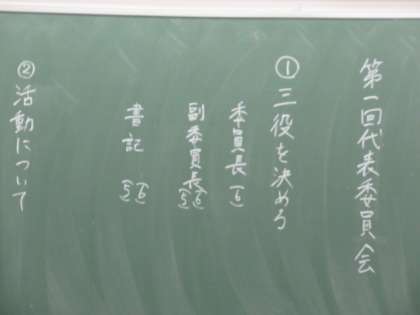 第一回代表委員会
①三役を決める
委員長(6)
副委員長(6)(5)
書記(6)(5)
②活動について